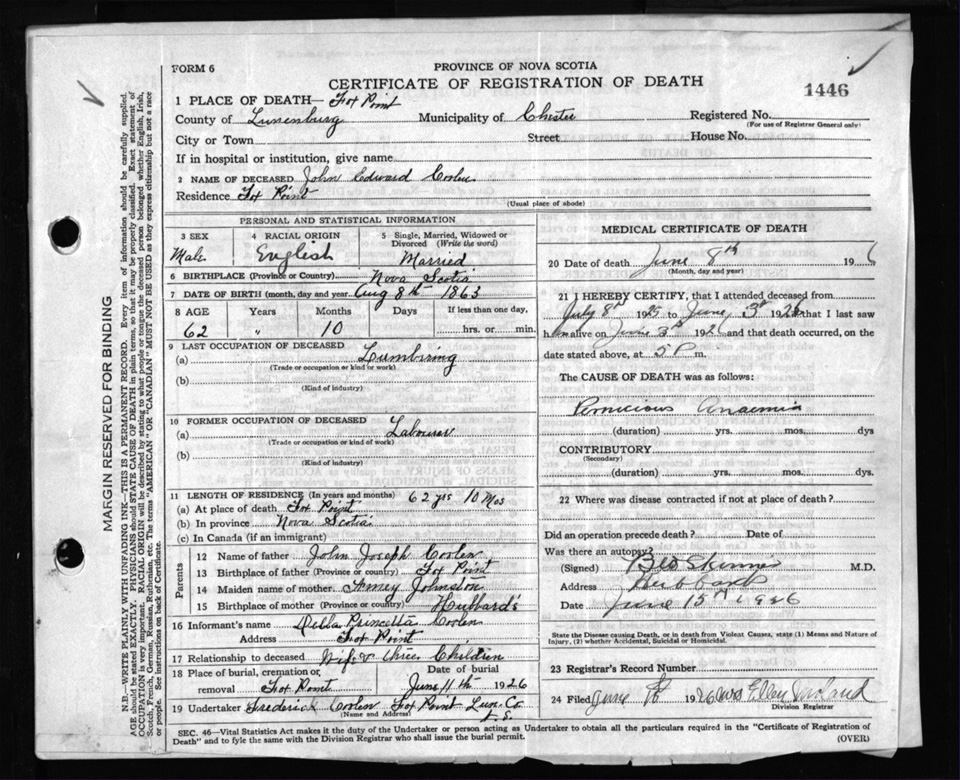 FORM 6
PROVINCE OF NOVA SCOTIA
CERTIFICATE OF REGISTRATION OF DEATH
1446
1 PLACE OF DEATH— Fox Point
County of Lunenburg Municipality of Chester Registered No.
(For use of Registrar General only)
City or Town Street House No.
If in hospital or institution, give name
2 NAME OF DECEASED John Edward Coolen
Residence Fox Point
(Usual place of abode)
PERSONAL AND STATISTICAL INFORMATION
3 SEX 4 RACIAL ORIGIN 5 Single, Married, Widowed or
Divorced (Write the word)
Male English Married
6 BIRTHPLACE (Province or Country) Nova Scotia
7 DATE OF BIRTH (month, day and year) Aug 8th 1863
8 AGE Years Months Days If less than one day,
62 " 10 hrs. or min.
9 LAST OCCUPATION OF DECEASED
(a) Lumbiring
(Trade or occupation or kind of work)
(b)
(Kind of industry)
10 FORMER OCCUPATION OF DECEASED
(a) Labourer
(Trade or occupation or kind of work)
(b)
(Kind of industry)
11 LENGTH OF RESIDENCE (In years and months) 62 yrs 10 Mos
(a) At place of death Fox Point
(b) In province Nova Scotia
(c) In Canada (if an immigrant)
Parents
12 Name of father John Joseph Coolen
13 Birthplace of father (Province or country) Fox Point
14 Maiden name of mother Amey Johnston
15 Birthplace of mother (Province or country) Hubbard's
16 Informant's name Princetta Coolen
Address Fox Point
17 Relationship to deceased Wife Children
18 Place of burial, cremation, or Date of burial
removal Fox Point June 11th 1926
19 Undertaker Frederick Coolen Fox Point Lun. Co
(Name and Address)
MEDICAL CERTIFICATE OF DEATH
20 Date of death June 8th 19 6
(Month, day and year)
21 I HEREBY CERTIFY, that I attended deceased from
July 8th 1925 to June 3rd 1926 that I last saw
h im alive on June 3rd 1926 and that death occurred, on the
date stated above, at 5 P m.
The CAUSE OF DEATH was as follows:
Pernicious Anaemia
(duration) yrs. mos. dys
CONTRIBUTORY
(Secondary)
(duration) yrs. mos. dys.
22 Where was disease contracted if not at place of death?
Did an operation precede death? Date of
Was there an autopsy?
(Signed) Skinner M.D.
Address Hubbards
Date June 15th 1926
State the Disease causing Death, or in death from Violent Causes, state (1) Means and Nature of
Injury, (2) whether Accidental, Suicidal or Homicidal.
23 Registrar's Record Number
24 Filed June 1926
Division Registrar
SEC. 46—Vital Statistics Act makes it the duty of the Undertaker or person acting as Undertaker to obtain all the particulars required in the "Certificate of Registration of
Death" and to fyle the same with the Division Registrar who shall issue the burial permit.
(OVER)
MARGIN RESERVED FOR BINDING
N.B.—WRITE PLAINLY WITH UNFADING INK—THIS IS A PERMANENT RECORD. Every item of information should be carefully supplied.
AGE should be stated EXACTLY. PHYSICIANS should STATE CAUSE OF DEATH in plain terms, so that it may be properly classified. Exact statement of
OCCUPATION is very important. RACIAL ORIGIN will be described by stating to what people or tongue the deceased person belonged whether English, Irish,
Scotch, French, German, Russian, Ruthenian, etc. The terms "AMERICAN" OR "CANADIAN" MUST NOT BE USED as they express citizenship but not a race
or people. See instructions on back of Certificate.